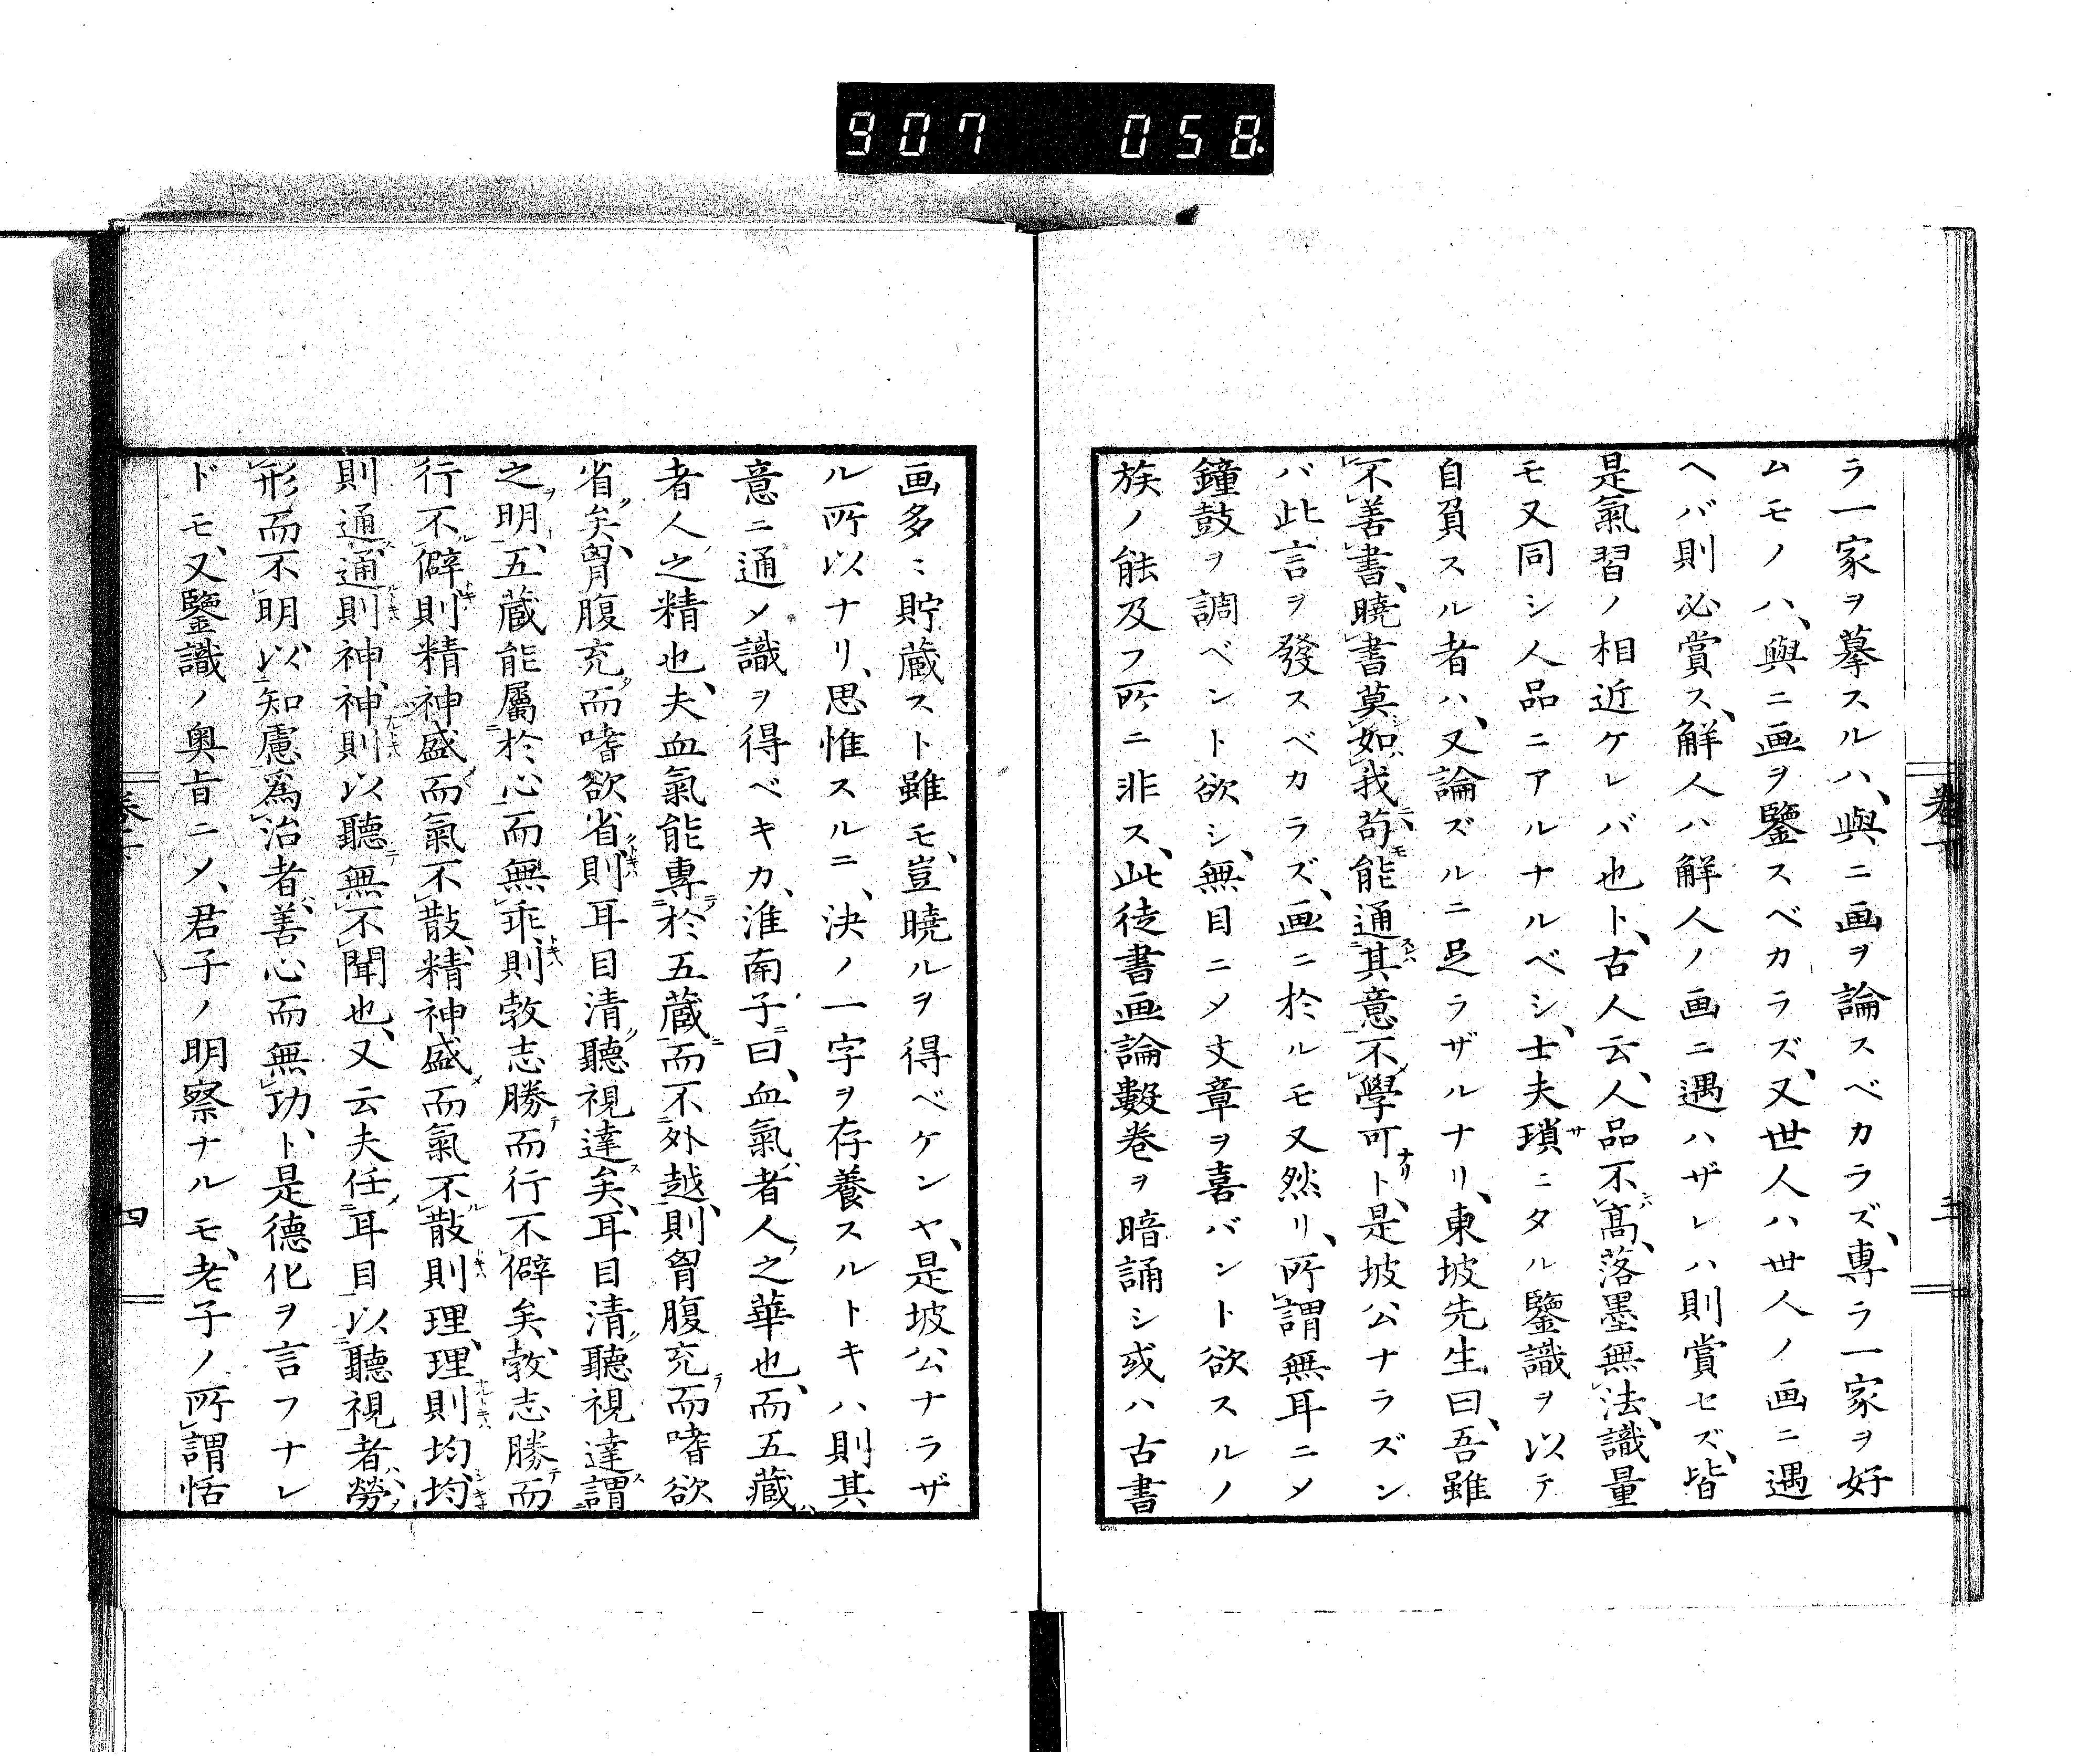 907 058
ラ一家ヲ摹スルハ、與ニ画ヲ論スベカラズ、專ラ一家ヲ好
ムモノハ、與ニ画ヲ鑒スベカラズ、又世人ハ世人ノ画ニ遇
ヘバ則必賞ス、解人ハ解人ノ画ニ遇ハザレハ則賞セズ、皆
是氣習ノ相近ケレバ也ト、古人云、人品不高、落墨無法、識量
モ又同シ人品ニアルナルベシ、士夫瑣ニタル鑒識ヲ以テ
自負スル者ハ、又論ズルニ足ラザルナリ、東坡先生曰、吾雖
不善書、曉書莫如我、苟能通其意、不學可ト、是坡公ナラズン
バ此言ヲ發スベカラズ、画ニ於ルモ又然リ、所謂無耳ニメ
鐘鼓ヲ調ベント欲シ、無目ニメ文章ヲ喜バント欲スルノ
族ノ能及フ所ニ非ス、此徒書画論數卷ヲ暗誦シ或ハ古書
卷下
三
画多ミ貯蔵スト雖モ、豈曉ルヲ得ベケンヤ、是坡公ナラザ
ル所以ナリ、思惟スルニ、決ノ一字ヲ存養スルトキハ則其
意ニ通メ識ヲ得ベキカ、淮南子曰、血氣者人之華也、而五藏
者人之精也、夫血氣能專於五藏而不外越、則胷腹充而嗜欲
省矣、胷腹充而嗜欲省、則耳目清聽視達矣、耳目清聽視達謂
之明、五藏能屬於心而無乖、則敦志勝而行不僻矣、敦志勝而
行不僻、則精神盛而氣不散、精神盛而氣不散則理、理則均、均
則通、通則神、神則以聽無不聞也、又云夫任耳目以聽視者、勞
形而不明、以知慮為治者、善心而無功、ト是德化ヲ言フナレ
ドモ、又鑒識ノ奥旨ニメ、君子ノ明察ナルモ、老子ノ所謂恬
卷下
四